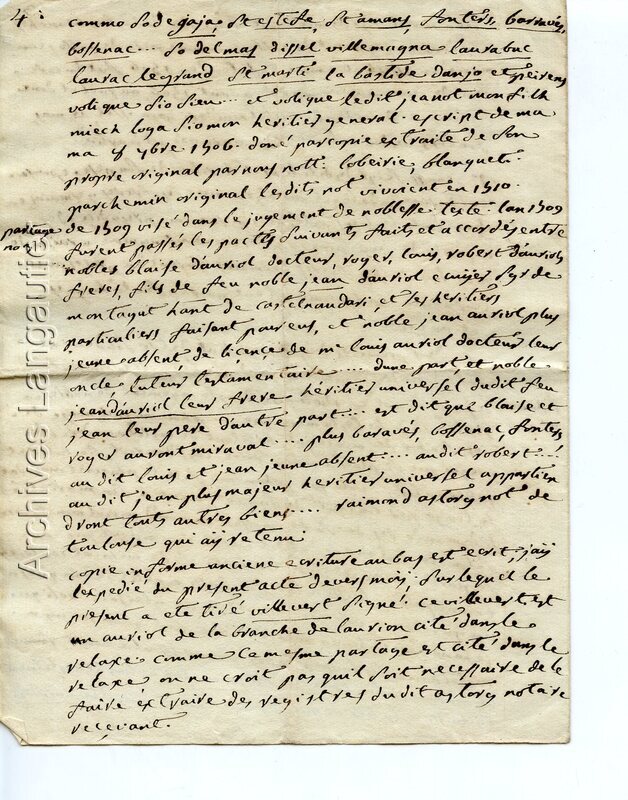 4:
commo so de gaja, St esteffe, St amans, fonters, baravés,
bossenac... so del mas dissel villemagna laurabuc
laurac le grand St marti la bastide danjo et peirens
volique sio sieu... et volique ledit jeanot mon filh
miech loga sio mon heritier general. escript de ma
ma 5 ybre 1506. doné par copie extraite de son
propre original par nous nott: lobeirie, blanqueti.
parchemin original lesdits not vivoient en 1510.
partage de 1509 visé dans le jugement de noblesse. texte. lan 1509
no
furent passés les pactes suivants faits et accordés entre
nobles blaise dauriol docteur, roger, louis, robert dauriols
freres, fils de feu noble jean dauriol ecuyer Sgr de
montagut hant de castelnaudari, et ses heritiers
particuliers faisant pour eux, et noble jean auriol plus
jeune absent de licence de me louis auriol docteur leur
oncle tuteur testamentaire.... dune part, et noble
jean dauriol leur frere heritier universel dudit feu
jean leur pere d'autre part... est dit que blaise et
roger auront miraval.... plus baravés, bossenac, fonters
au dit louis et jean jeune absent... audit robert...
au dit jean plus majeur heritier universel appartien
dront touts autres biens.... raimond astorg not de
toulouse qui ay retenu
copie informe anciene ecriture au bas est ecrit, j'ay
l'expedié du present acte devers moy, sur lequel le
present a ete tiré villevert signé: ce villevert est
un auriol de la branche de laurion cité dans le
relaxe. comme ce mesme partage est cité dans le
relaxe on ne croit pas quil soit necessaire de le
faire extraire des registres dudit astorg notaire
recevant.
Archives Langautier